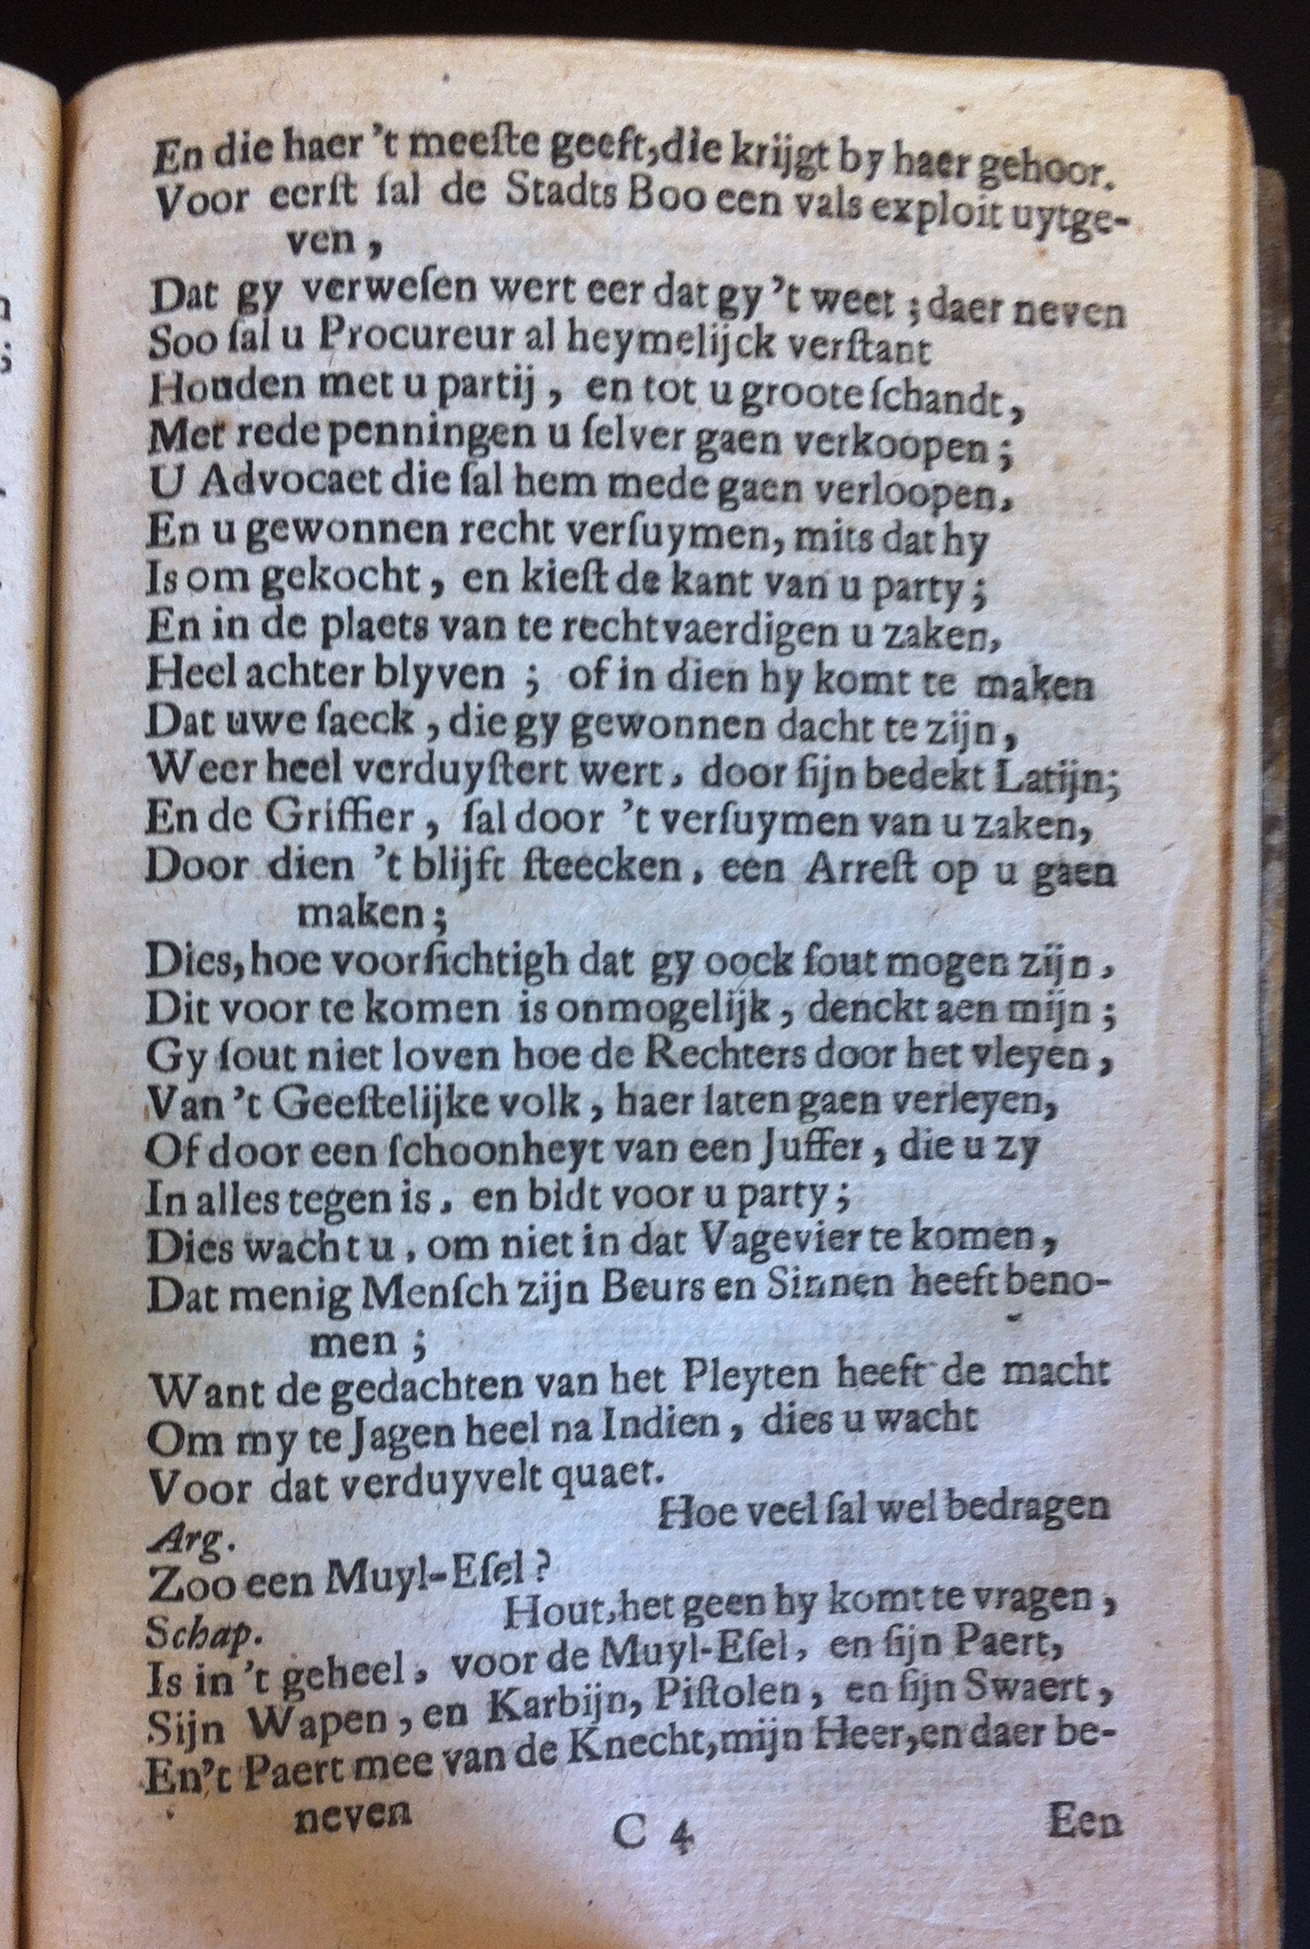 En die haer 't meeſte geeft, die krijgt by haer gehoor.
Voor eerſt ſal de Stadts Boo een vals exploit uytge-
ven,
Dat gy verweſen wert eer dat gy 't weet; daer neven
Soo ſal u Procureur al heymelijck verſtant
Houden met u partij, en tot u groote ſchandt,
Met rede penningen u ſelver gaen verkoopen;
U Advocaet die ſal hem mede gaen verloopen,
En u gewonnen recht verſuymen, mits dat hy
Is om gekocht, en kieſt de kant van u party;
En in de plaets van te rechtvaerdigen u zaken,
Heel achter blyven; of in dien hy komt te maken
Dat uwe ſaeck, die gy gewonnen dacht te zijn,
Weer heel verduyſtert wert, door ſijn bedekt Latijn;
En de Griffier, ſal door 't verſuymen van u zaken,
Door dien 't blijft ſteecken, een Arreſt op u gaen
maken;
Dies, hoe voorſichtigh dat gy oock ſout mogen zijn,
Dit voor te komen is onmogelijk, denckt aen mijn;
Gy ſout niet loven hoe de Rechters door het vleyen,
Van 't Geeſtelijke volk, haer laten gaen verleyen,
Of door een ſchoonheyt van een Juffer, die u zy
In alles tegen is, en bidt voor u party;
Dies wacht u, om niet in dat Vagevier te komen,
Dat menig Menſch zijn Beurs en Sinnen heeft beno-
men;
Want de gedachten van het Pleyten heeft de macht
Om my te Jagen heel na Indien, dies u wacht
Voor dat verduyvelt quaet.
Hoe veel ſal wel bedragen
Arg.
Zoo een Muyl-Eſel?
Hout, het geen hy komt te vragen,
Schap.
Is in 't geheel, voor de Muyl-Eſel, en ſijn Paert,
Sijn Wapen, en Karbijn, Piſtolen, en ſijn Swaert,
En 't Paert mee van de Knecht, mijn Heer, en daer be-
neven
C 4
Een